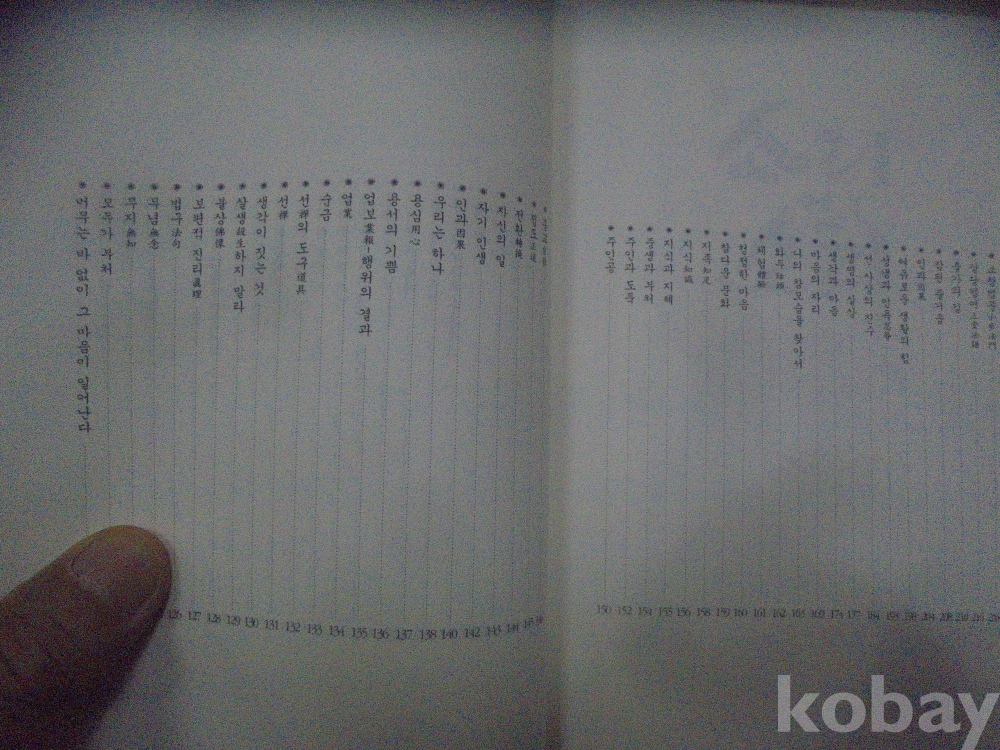 머무는 바 없이 그 마음이 일어난다
모두가 부처
무지無知
무념無念
법구法句 126
보편적 진리眞理 127
불상佛像 128
살생殺生하지 말라 129
생각이 짓는 것 130
선禪 131
선禪의 도구道具 132
순금 133
업業 134
업보業報-행위의 결과 135
용서의 기쁨 136
용심用心 137
우리는 하나 138
인과因果 140
자기 인생 142
자신의 일 143
전환轉換 144
145
주인공 150
주인과 도둑 152
중생과 부처 154
지식과 지혜 155
지식知識 156
지족知足 158
참다운 문화 159
청정한 마음 160
체험體驗 161
화두話頭 162
나의 참모습을 찾아서 163
마음의 자리 169
생각과 마음 174
생명의 실상 177
사상의 진수 184
193
여유로운 생활의 힘 198
인과因果 204
참된 즐거움 208
출가의 길 210
kobay